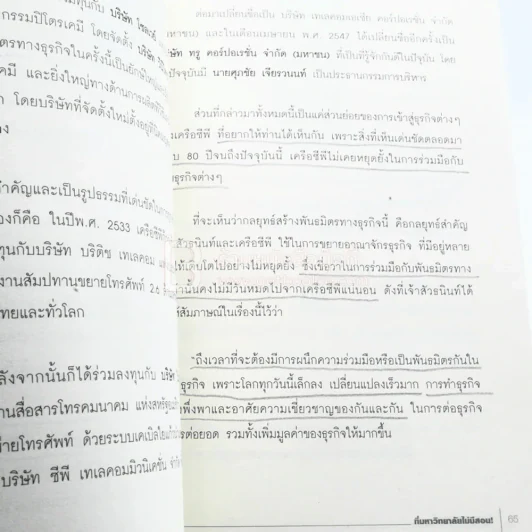 มทุนกับ บริษัท
กรรมปิโตรเคมี โดยจัดตั้ง บริษัท
ตรทางธุรกิจในครั้งนี้เป็นยักษ์ใหญ่
เคมี และยิ่งใหญ่ทางด้านการผลิต
ก โดยบริษัทที่จัดตั้งใหม่ตั้งอยู่
อง
สำคัญและเป็นรูปธรรมที่เด่นชัดในการ
องก็คือ ในปีพ.ศ. 2533 เครือซีพี
ทุนกับบริษัท บริติช เทเลคอม
งานสัมปทานขยายโทรศัพท์ 2.6
ไทยและทั่วโลก
ลังจากนั้นก็ได้ร่วมลงทุนกับ บริษัท
านสื่อสารโทรคมนาคม แห่งสหรัฐ
ข่ายโทรศัพท์ ด้วยระบบเคเบิลใย
บริษัท ซีพี เทเลคอมมิวนิเคชั่น จำกัด
ต่อมาเปลี่ยนชื่อเป็น บริษัท เทเลคอมเอเชีย คอร์ปอเรชั่น จำกัด
มหาชน) และในเดือนเมษายน พ.ศ. 2547 ได้เปลี่ยนชื่ออีกครั้งเป็น
ษัท ทรู คอร์ปอเรชั่น จำกัด (มหาชน) ที่เป็นที่รู้จักกันดีในปัจจุบัน โดย
ปัจจุบันมี นายศุภชัย เจียรวนนท์ เป็นประธานกรรมการบริหาร
ส่วนที่กล่าวมาทั้งหมดนี้เป็นแค่ส่วนย่อยของการเข้าสู่ธุรกิจต่างๆ
เครือซีพี ที่อยากให้ท่านได้เห็นกัน เพราะสิ่งที่เห็นเด่นชัดตลอดมา
บ 80 ปีจนถึงปัจจุบันนี้ เครือซีพีไม่เคยหยุดยั้งในการร่วมมือกับ
ธุรกิจต่างๆ
ที่จะเห็นว่ากลยุทธ์สร้างพันธมิตรทางธุรกิจนี้ คือกลยุทธ์สำคัญ
สัวธนินท์และเครือซีพี ใช้ในการขยายอาณาจักรธุรกิจ ที่มีอยู่หลาย
ให้เติบโตไปอย่างไม่หยุดยั้ง ซึ่งเชื่อว่าในการร่วมมือกับพันธมิตรทาง
นั้นคงไม่มีวันหมดไปจากเครือซีพีแน่นอน ดังที่เจ้าสัวธนินท์ได้
ห้สัมภาษณ์ในเรื่องนี้ไว้ว่า
"ถึงเวลาที่จะต้องมีการผนึกความร่วมมือหรือเป็นพันธมิตรกันใน
ธุรกิจ เพราะโลกทุกวันนี้เล็กลง เปลี่ยนแปลงเร็วมาก การทำธุรกิจ
พึ่งพาและอาศัยความเชี่ยวชาญของกันและกัน ในการต่อธุรกิจ
ารต่อยอด รวมทั้งเพิ่มมูลค่าของธุรกิจให้มากขึ้น
ที่มหาวิทยาลัยไม่มีสอน! 65